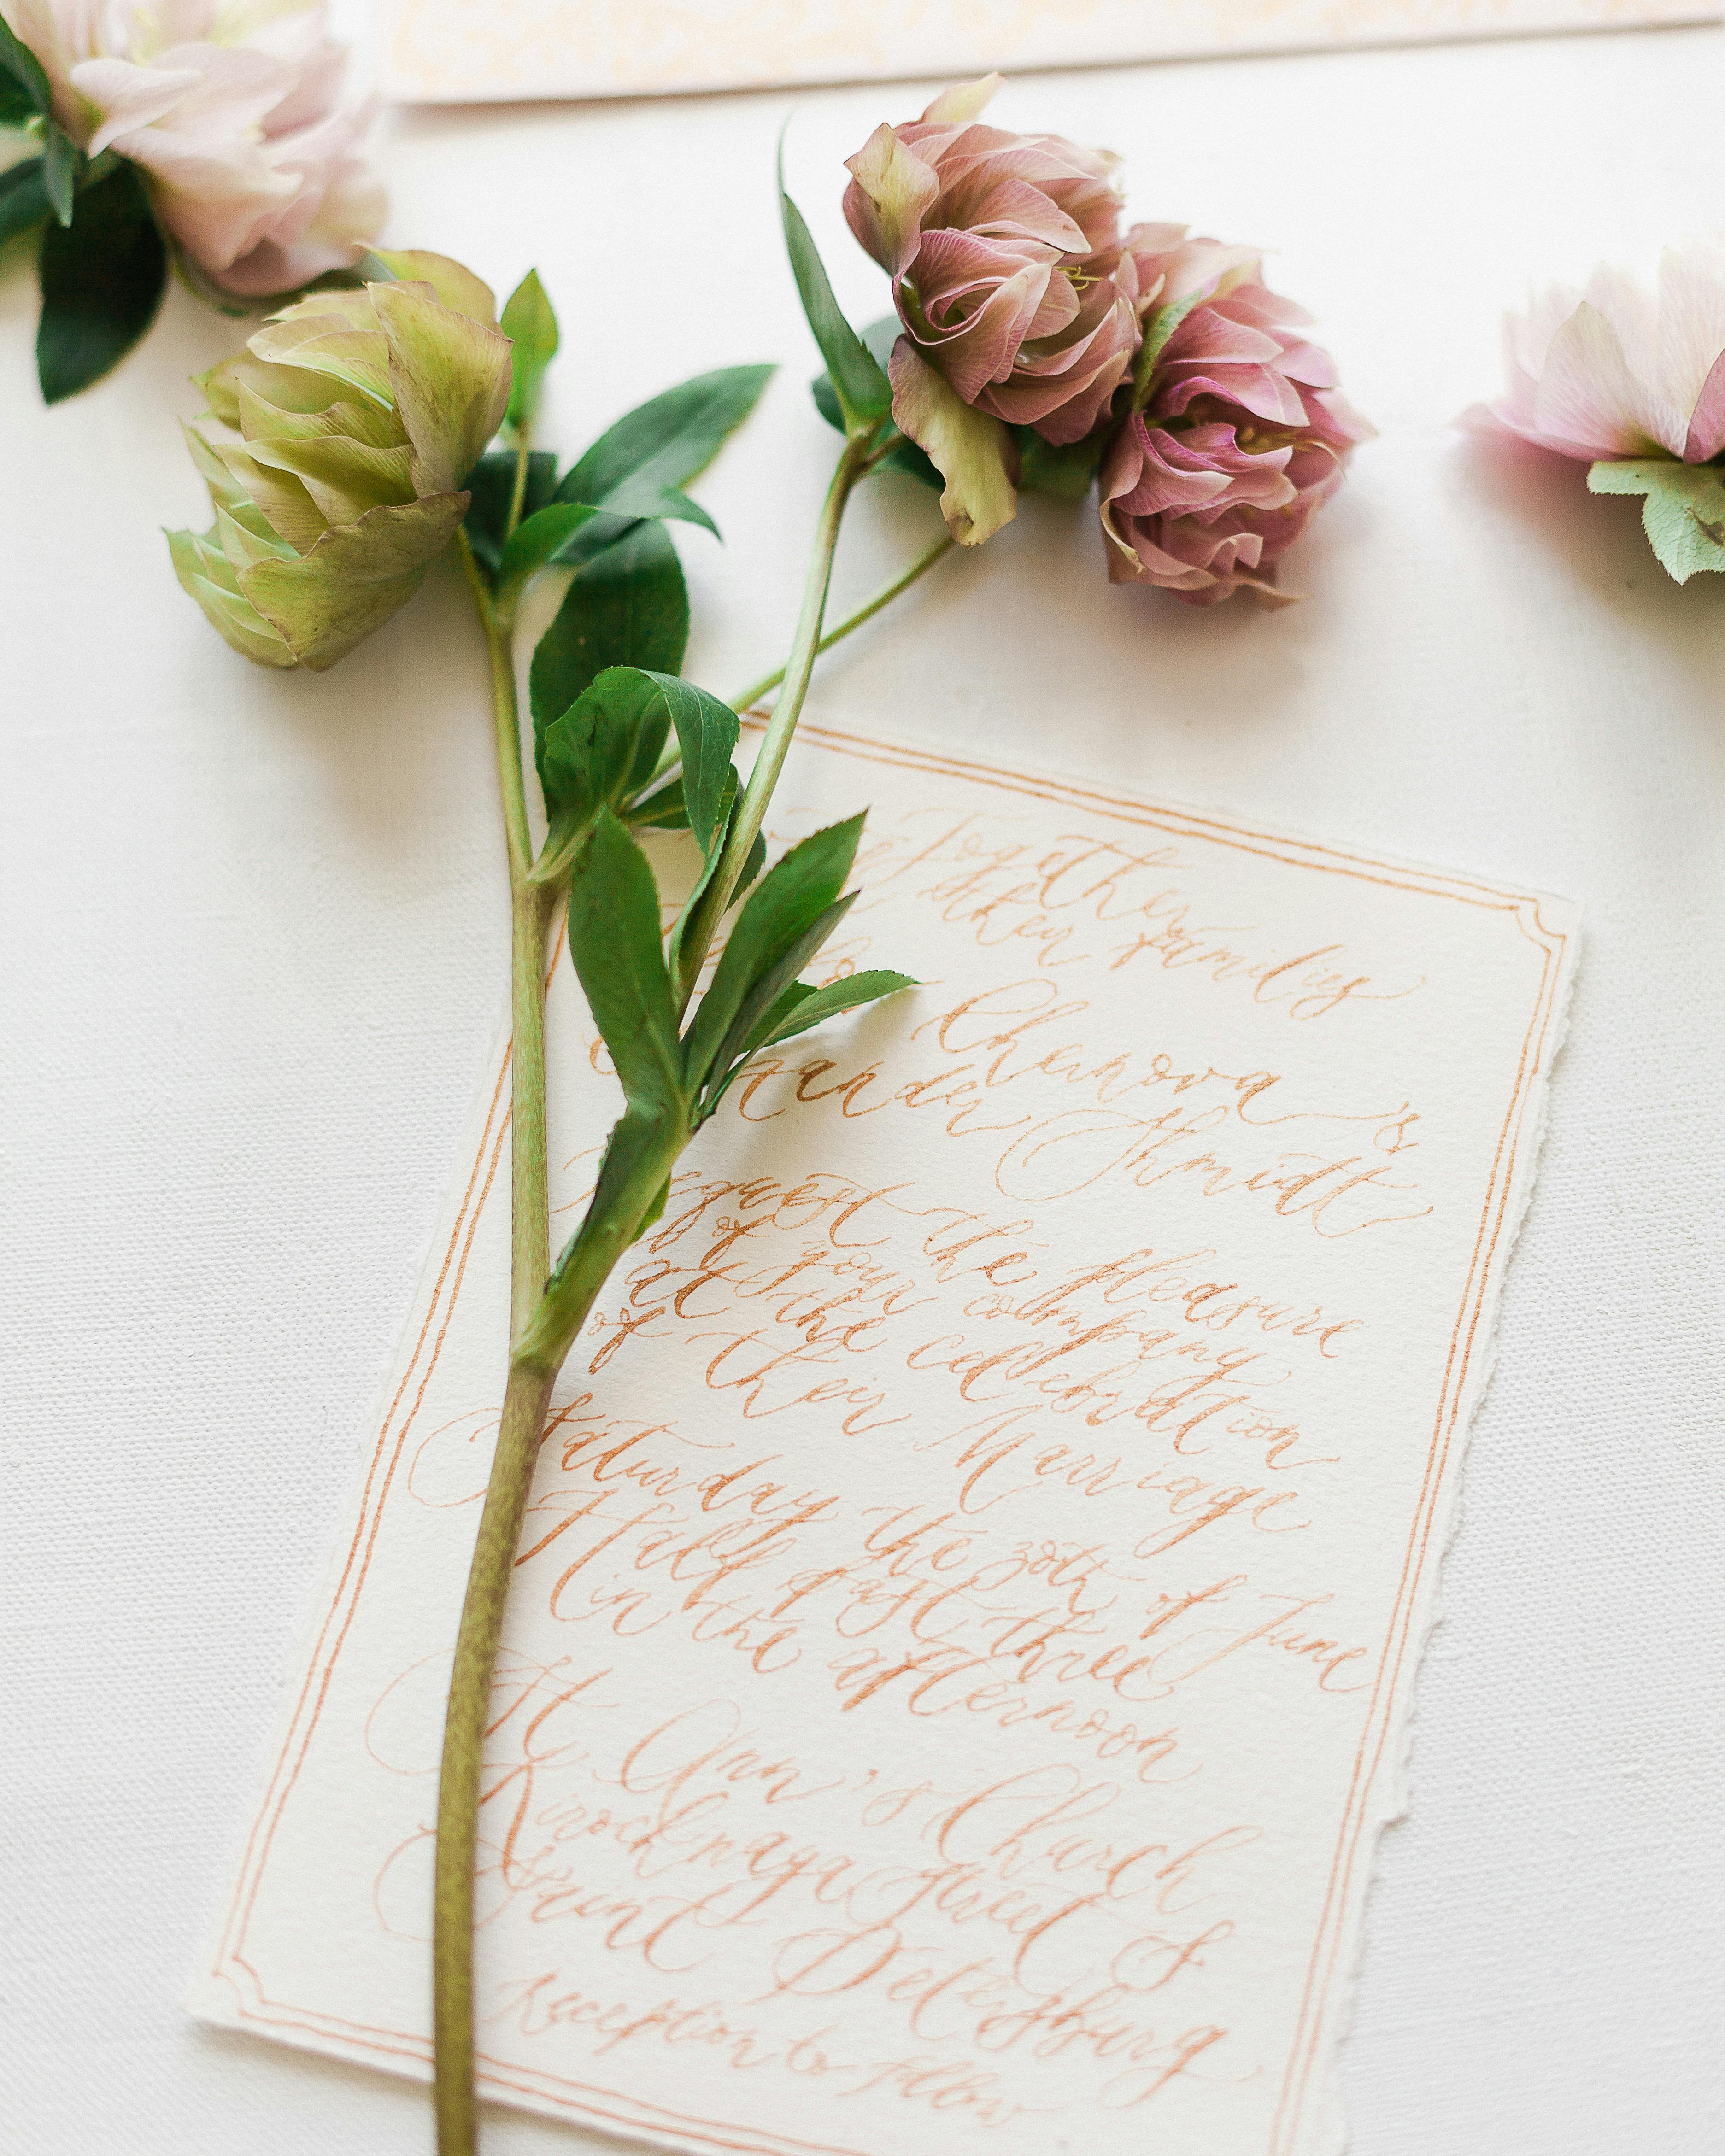 Together
their families
Chernova &
ander Shmidt
Request the pleasure
of your company
at the celebration
of their Marriage
Saturday the 30th of June
Half past three
in the afternoon
St Ann's Church
street 8
Saint Petersburg
Reception to follow